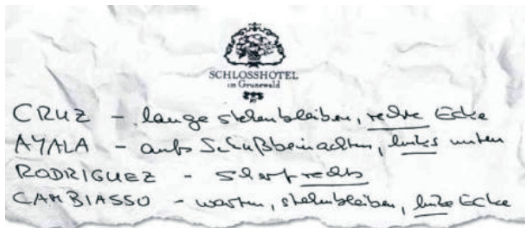 SCHLOSSHOTEL
im Grunewald
CRUZ – lange stehenbleiben, rechte Ecke
AYALA – aufs Schußbein achten, links unten
RODRIGUEZ – scharf rechts
CAMBIASSO – warten, stehenbleiben, linke Ecke